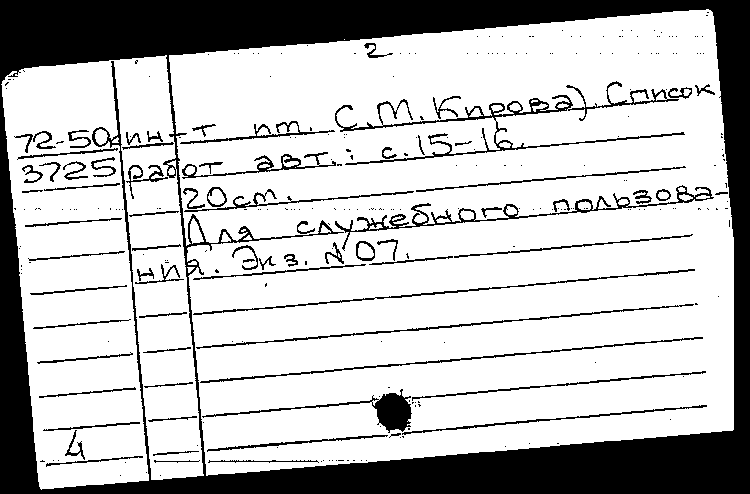 2
72-50 ин-т им. С.М. Кирова). Список
3725 работ авт.: с.15-16.
20см.
Для служебного пользова-
ния. Экз. №07.
4